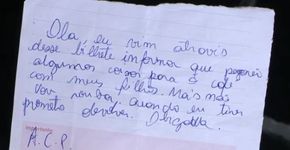 Olá, eu vim atravis
desse bilhete informar que pegarei
algumas coisas para
com meus filhos. Mais não
vou roubar, quando eu tiver
prometo devolver.
A.C.P.